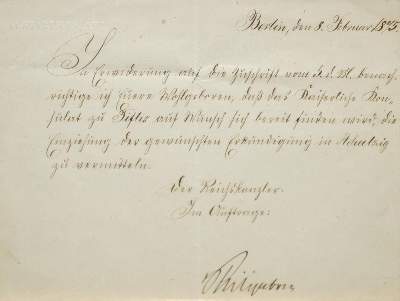 Berlin, den 8. Februar 1875.
In Erwiderung auf die Zuschrift vom d. M. benach-
richtige ich Euere Wohlgeboren, daß das Kaiserliche Kon-
sulat zu Tiflis auf Wunsch sich bereit finden wird, die
Einziehung der gewünschten Erkundigung in
zu vermitteln.
Der Reichskanzler.
Im Auftrage: